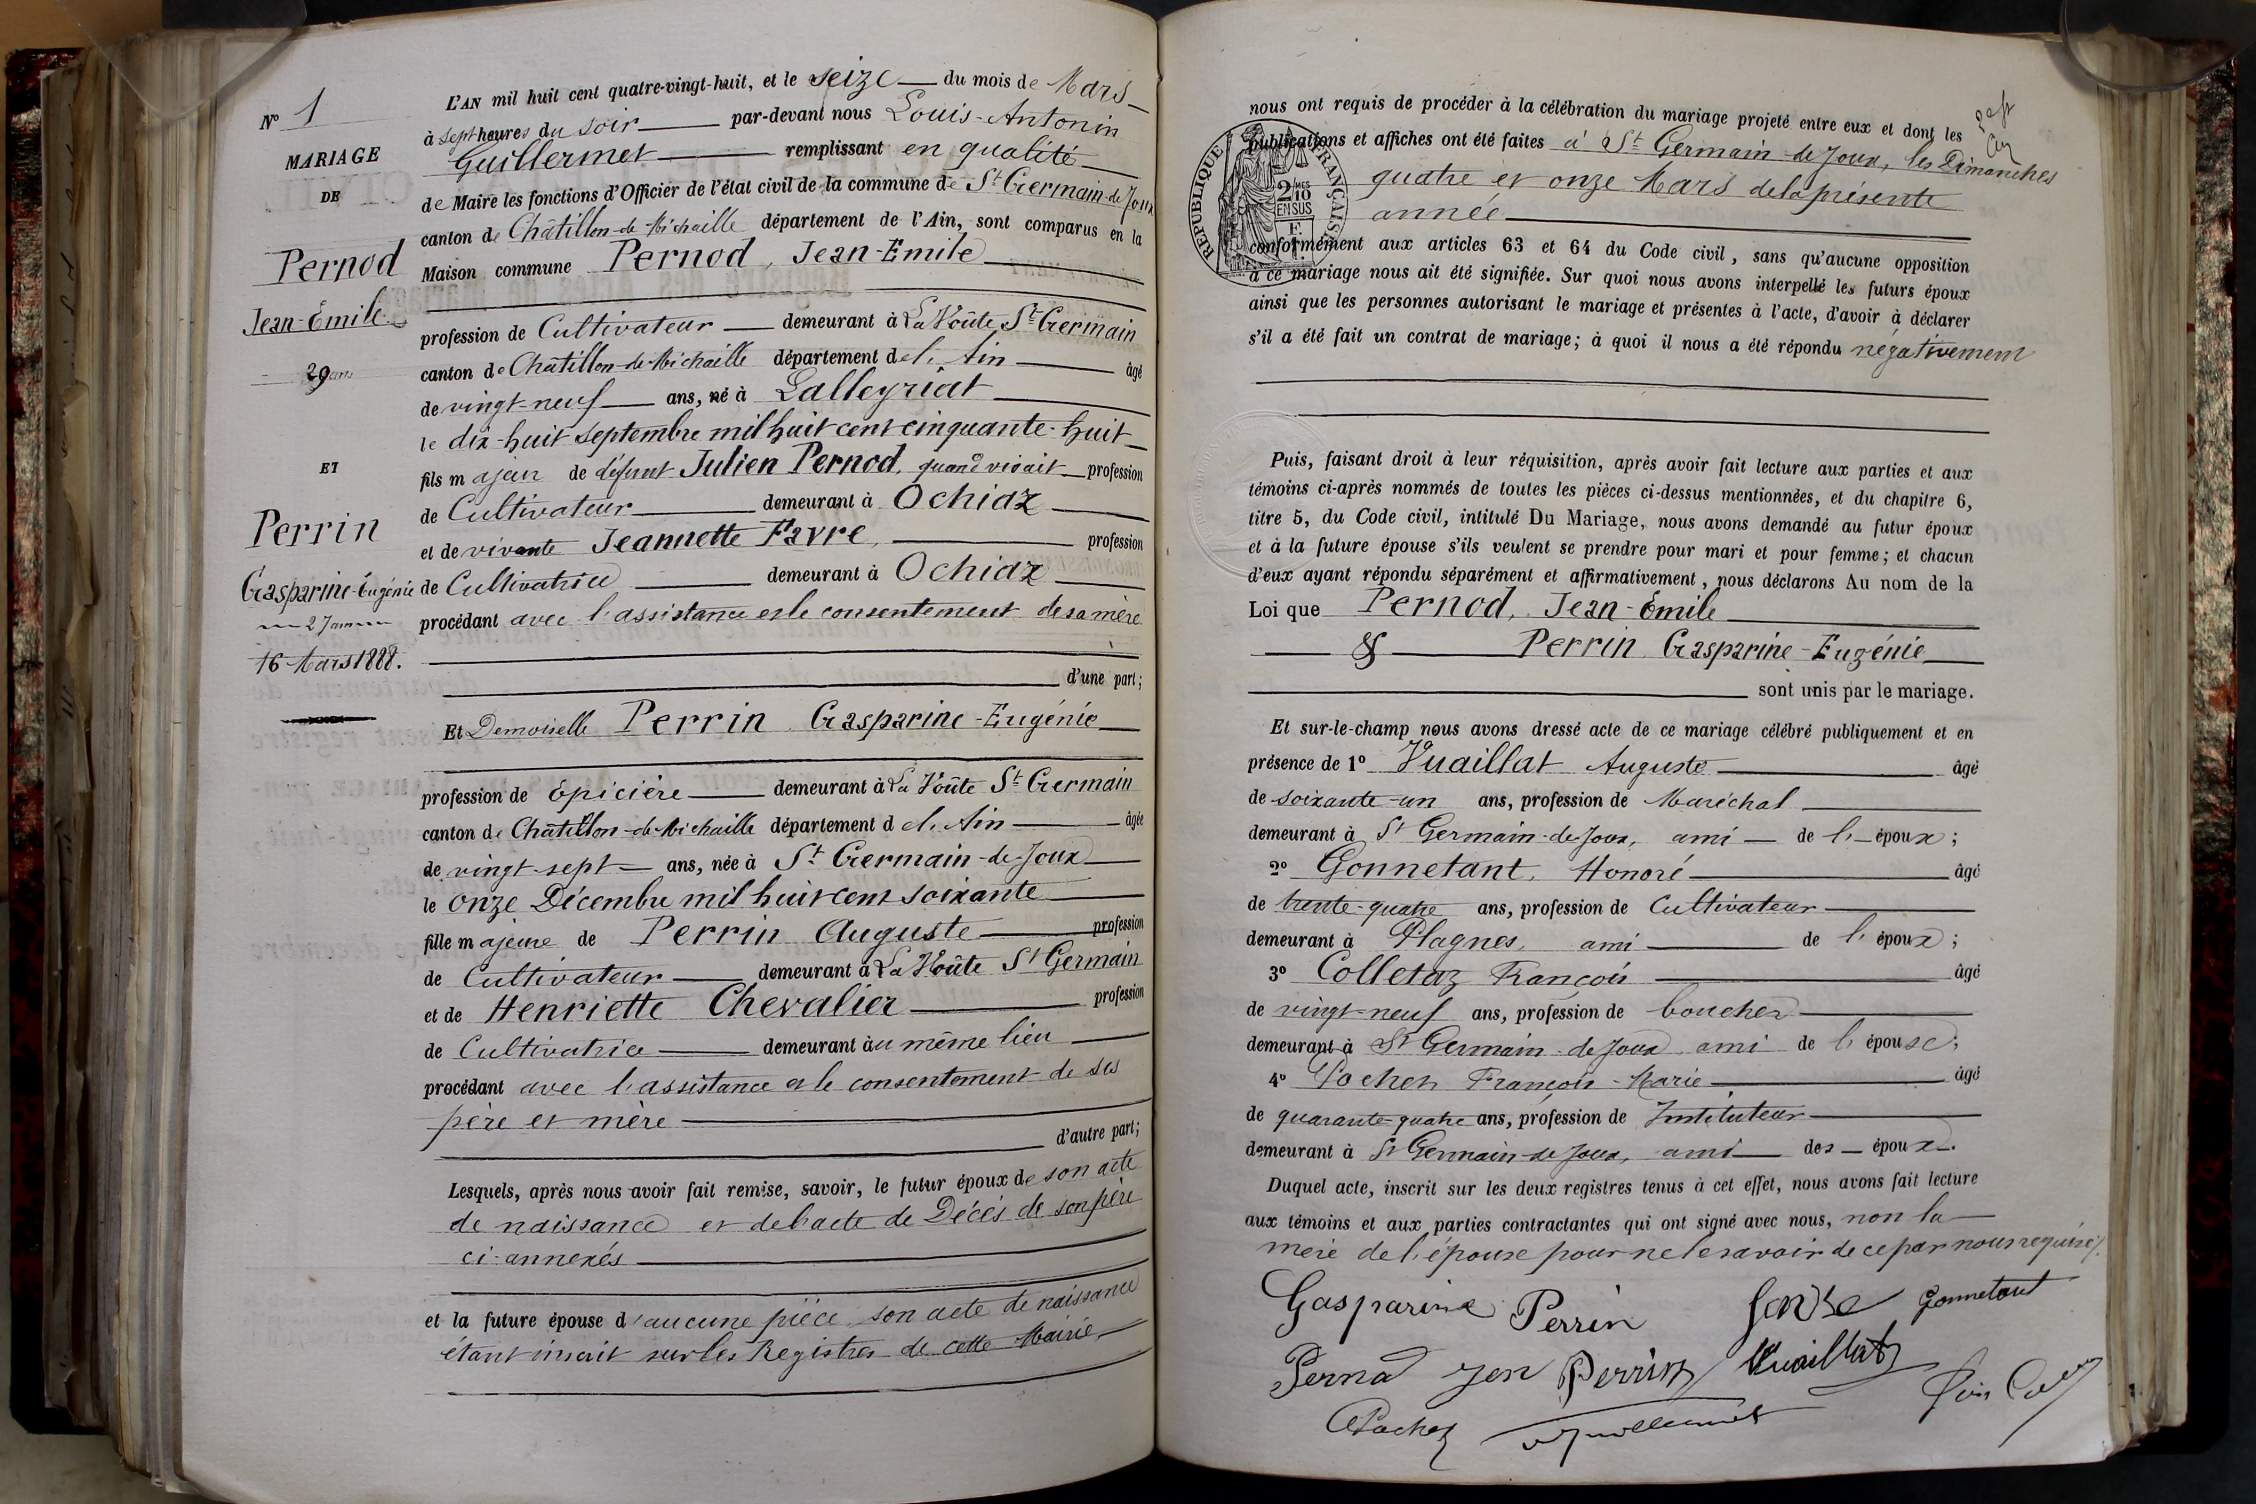 N° 1
MARIAGE
DE
Pernod
Jean-Émile
29 ans
ET
Perrin
Gasparine-Eugénie
27 ans
16 Mars 1888.
L'AN mil huit cent quatre-vingt-huit, et le seize du mois de Mars
à sept heures du soir par-devant nous Louis-Antonin
Guillermet remplissant en qualité
de Maire les fonctions d'Officier de l'état civil de la commune de St Germain-de-Joux
canton de Châtillon-de-Michaille département de l'Ain, sont comparus en la
Maison commune Pernod, Jean-Emile
profession de Cultivateur demeurant à La Voûte St Germain
canton de Châtillon-de-Michaille département de l'Ain âgé
de vingt-neuf ans, né à Lalleyriat
le dix-huit septembre mil huit cent cinquante-huit
fils majeur de défunt Julien Pernod, quand vivait profession
de Cultivateur demeurant à Ochiaz
et de vivante Jeannette Favre, profession
de Cultivatrice demeurant à Ochiaz
procédant avec l'assistance et le consentement de sa mère
d'une part;
Et Demoiselle Perrin Gasparine-Eugénie
profession de Epicière demeurant à La Voûte St Germain
canton de Châtillon-de-Michaille département de l'Ain âgée
de vingt-sept ans, née à St Germain-de-Joux
le onze Décembre mil huit cent soixante
fille majeure de Perrin Auguste profession
de Cultivateur demeurant à La Voûte St Germain
et de Henriette Chevalier profession
de Cultivatrice demeurant au même lieu
procédant avec l'assistance et le consentement de ses
père et mère
d'autre part;
Lesquels, après nous avoir fait remise, savoir, le futur époux de son acte
de naissance et de l'acte de Décès de son père
ci-annexés
et la future épouse d'aucune pièce son acte de naissance
étant inscrit sur les Registres de cette Mairie
nous ont requis de procéder à la célébration du mariage projeté entre eux et dont les
publications et affiches ont été faites à St Germain-de-Joux, les Dimanches
quatre et onze Mars de la présente
année
RÉPUBLIQUE FRANÇAISE
2 MES
10
EN SUS
conformément aux articles 63 et 64 du Code civil, sans qu'aucune opposition
à ce mariage nous ait été signifiée. Sur quoi nous avons interpellé les futurs époux
ainsi que les personnes autorisant le mariage et présentes à l'acte, d'avoir à déclarer
s'il a été fait un contrat de mariage; à quoi il nous a été répondu négativement
Puis, faisant droit à leur réquisition, après avoir fait lecture aux parties et aux
témoins ci-après nommés de toutes les pièces ci-dessus mentionnées, et du chapitre 6,
titre 5, du Code civil, intitulé Du Mariage, nous avons demandé au futur époux
et à la future épouse s'ils veulent se prendre pour mari et pour femme; et chacun
d'eux ayant répondu séparément et affirmativement, nous déclarons Au nom de la
Loi que Pernod, Jean-Émile
& Perrin Gasparine-Eugénie
sont unis par le mariage.
Et sur-le-champ nous avons dressé acte de ce mariage célébré publiquement et en
présence de 1° Vuaillat Auguste âgé
de soixante-un ans, profession de Maréchal
demeurant à St Germain-de-Joux, ami de l'époux;
2° Gonnetant, Honoré âgé
de trente-quatre ans, profession de Cultivateur
demeurant à Plagnes, ami de l'époux;
3° Colletaz François âgé
de vingt-neuf ans, profession de boucher
demeurant à St Germain-de-Joux ami de l'épouse;
4° Pochet François-Marie âgé
de quarante-quatre ans, profession de Instituteur
demeurant à St Germain-de-Joux, ami des époux.
Duquel acte, inscrit sur les deux registres tenus à cet effet, nous avons fait lecture
aux témoins et aux parties contractantes qui ont signé avec nous, non la
mère de l'épouse pour ne le savoir de ce par nous requise.
Gasparine Perrin Gonnetant
Pernod Perrin Vuaillat
Pochet Guillermet